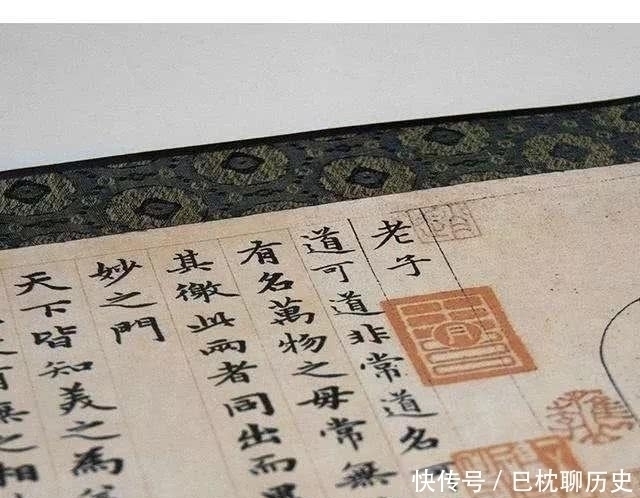 老子
道可道非常道名
有名萬物之母常無
其徼此兩者同出而
妙之門
天下皆知美之為
快传号/巳枕聊历史